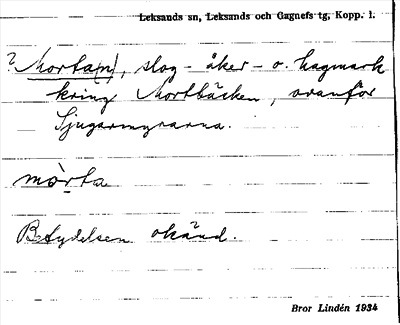 Leksands sn, Leksands och Gagnefs tg, Kopp. l.
? Morta(n), slog- åker- o. hagmark
kring Mortbäcken, ovanför
Sjugarmyrarna.
mòrta
Betydelsen okänd.
Bror Lindén 1934